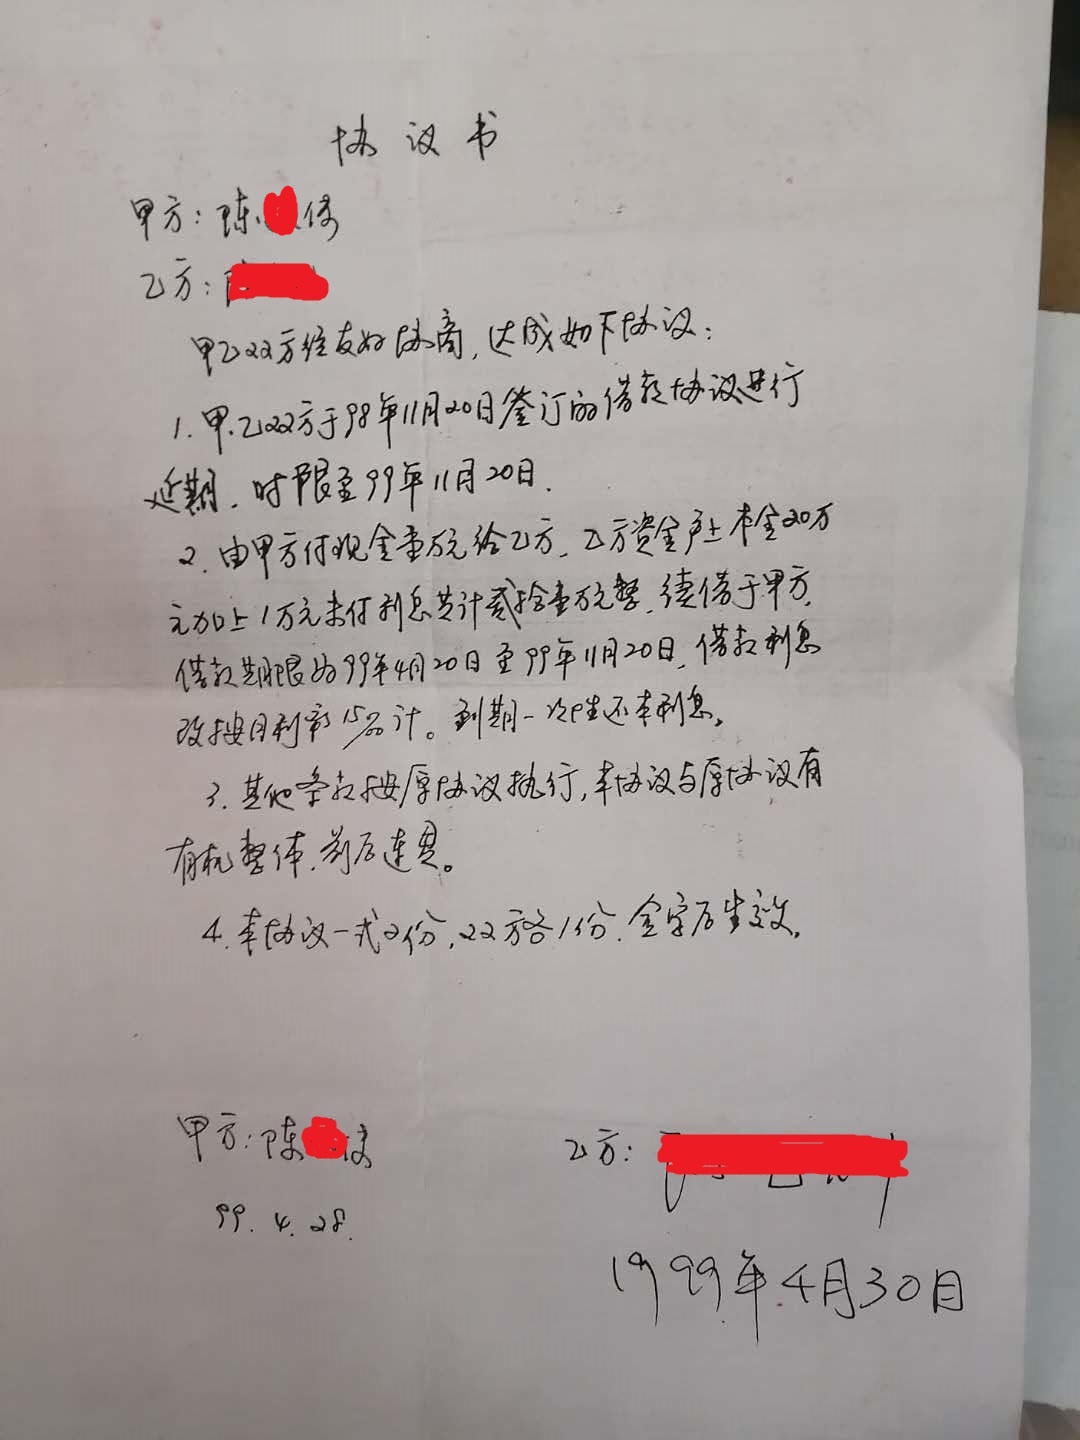 协议书
甲方：陈
乙方：
甲乙双方经友好协商，达成如下协议：
1.甲.乙双方于98年11月20日签订的借款协议进行
延期，时限至99年11月20日.
2.由甲方付现金壹万元给乙方，乙方资金户上本金20万
元加上1万元未付利息共计贰拾壹万元整，续借于甲方，
借款期限为99年4月20日至99年11月20日，借款利息
改按月利率15‰计。到期一次性还本利息。
3.其他条款按原协议执行，本协议与原协议有
有机整体，前后连贯。
4.本协议一式2份，双方各1份，签字后生效。
甲方：陈
乙方：
99.4.28.
1999年4月30日